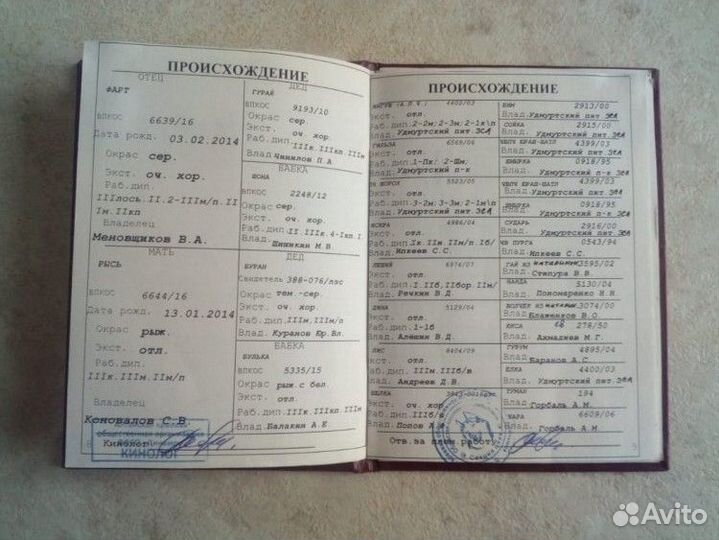 ПРОИСХОЖДЕНИЕ
ОТЕЦ
ФАРТ
ВПКОС 6639/16
Дата рожд. 03.02.2014
Окрас сер.
Экст. оч. хор.
Раб.дип.
IIIлось.II.2-IIIм/п.II
Iм.IIкп
Владелец
Меновщиков В.А.
МАТЬ
РЫСЬ
ВПКОС 6644/16
Дата рожд. 13.01.2014
Окрас рыж.
Экст. отл.
Раб. дип.
IIIк.IIIм.IIм/п
Владелец
Коновалов С.В
Кинолог
КИНОЛОГ
ДЕД
ГУРАЙ
ВПКОС 9193/10
Окрас сер.
Экст. оч. хор.
Раб.дип.IIIк.IIIкп.IIм
Влад.Чинилов П.А
БАБКА
ШОНА
ВПКОС 2248/12
Окрас сер.
Экст. оч. хор.
Раб.дип.II
Влад. Шишкин М.В
ДЕД
БУРАН
Свидетель 388-076/лос
Окрас тем.-сер.
Экст. оч. хор.
Раб.дип.IIIм.IIIм/п
Влад. Куранов Ер.Вл.
БАБКА
БУЛЬКА
ВПКОС 5335/15
Окрас рыж.с бел.
Экст. отл.
Раб.дип.IIIк.IIIкп.IIIм
Влад. Балакин А.Е.
ПРОИСХОЖДЕНИЕ
4400/03
Экст. отл.
Раб.дип.2-2м;2-3м;2-1к\п
Влад. Удмуртский пит ЗСЛ
ГИЛЬЗА 6569/06
Экст. отл.
Раб.дип.1-Пк; 2-Шм.
Влад. Удмуртский п-к
5523/05
Экст. отл.
Раб.дип.3-2м;3-3м;2-1м\п
Влад. Удмуртский пит ЗСЛ
ИСКРА 4986/04
Экст. отл.
Влад. Ипкеев С.С.
ЛЕШИЙ 6974/07
Экст. отл.
Влад. Речкин В.Д.
ДИНА 5129/04
Экст. отл.
Раб.дип.1-1б
Влад. Алешин В.Д
ЛИС 8404/09
Экст. отл.
Раб.дип.IIIм.IIIб/в
Влад. Андреев Д.В.
БЕЛКА
Экст. отл.
Раб.дип.IIIб/в
Влад. Попов А.
Отв.за плем.работу
БИМ 2913/00
Влад. Удмуртский пит ЗСЛ
СОЙКА 2915/00
Влад. Удмуртский пит ЗСЛ
4399/03
Влад. Удмуртский пит ЗСЛ
0918/95
Влад. Удмуртский п-к ЗСЛ
4399/03
Влад. Удмуртский пит ЗСЛ
0918/95
Влад. Удмуртский п-к ЗСЛ
СУДАРЬ 2916/00
Влад. Удмуртский пит ЗСЛ
ЧВ ПУРГА 0543/94
Влад. Ипкеев С.С.
3595/02
Влад. Стипура В.В.
НАЙДА 5130/04
Влад. Пономаренко Н.Н
3074/00
Влад. Блаженков В.О
КИСА 278/50
Влад. Ахмадиев М Г.
ГУГУМ 4895/04
Влад. Баранов А.С.
ЕЛКА 4400/03
Влад. Удмуртский пит ЗСЛ
ТУМАН 194
Влад. Горбаль А.М.
ЧАРА 6609/06
Влад. Горбаль А.М.
Avito